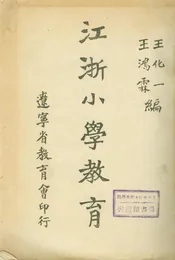 王化一
王鴻霖 編
江浙小學教育
遼寧省教育會印行